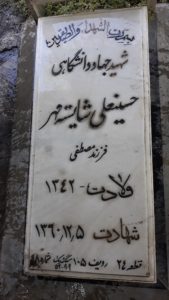 شهید جهاد دانشگاهی
حسینعلی شایسته مهر
فرزند مصطفی
ولادت - ۱۳۴۲
شهادت ۱۳۶۰,۱۲,۵
قطعه ۲۴ ردیف ۱۰۵ شماره